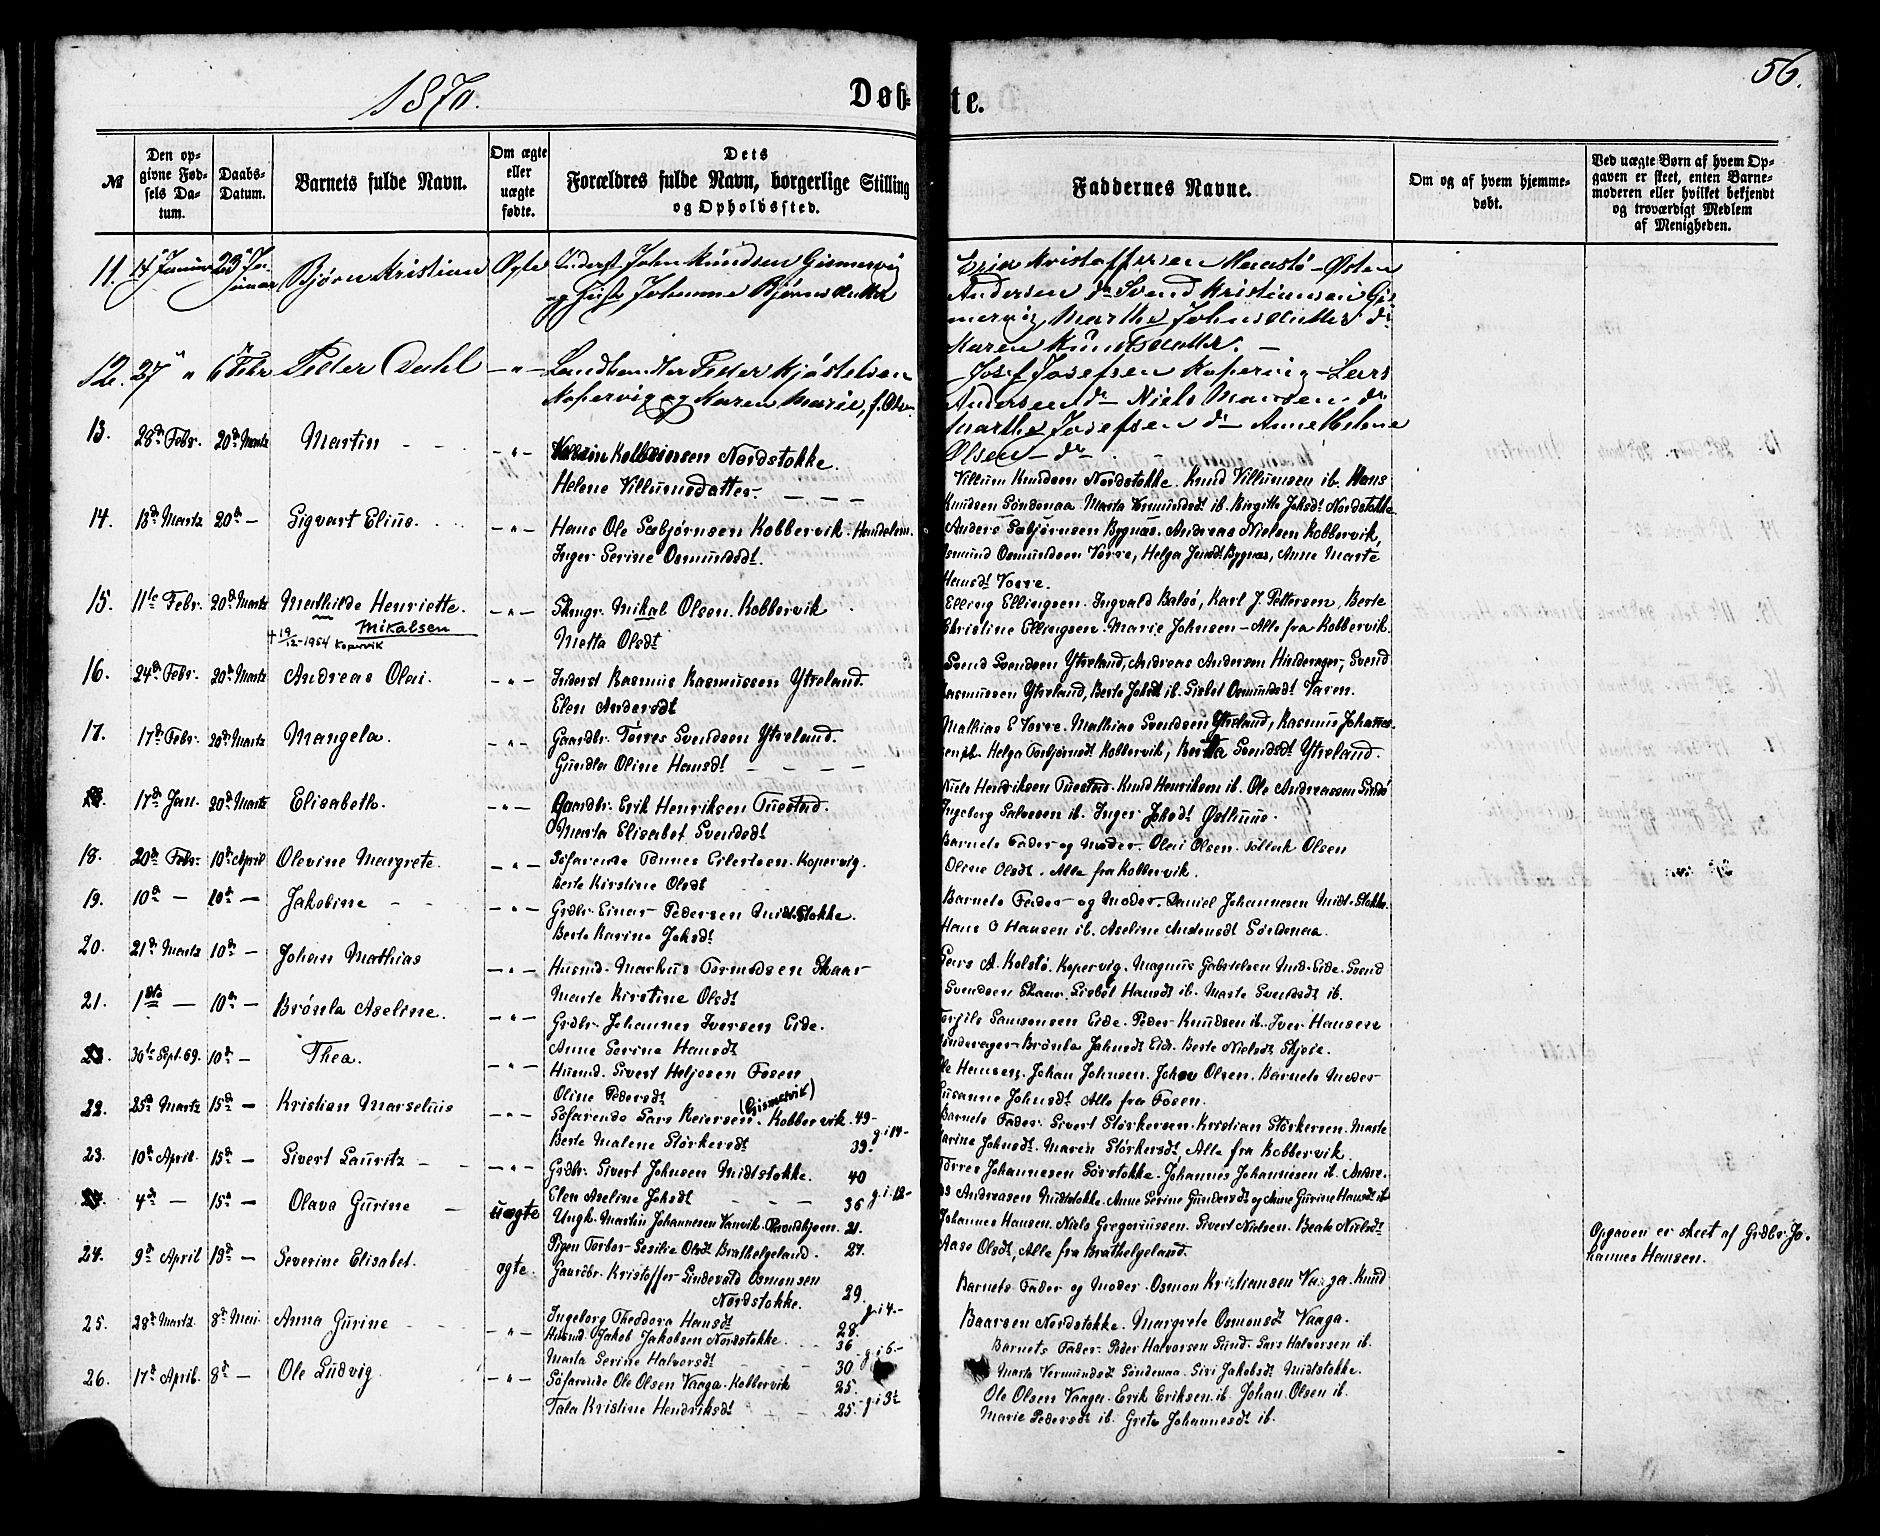 1870.
Døb-
te.
56.
№
Den op-
givne Fød-
sels Da-
tum.
Daabs-
Datum.
Barnets fulde Navn.
Om ægte
eller
uægte
fødte.
Dets
Forældres fulde Navn, borgerlige Stilling
og Opholdssted.
Faddernes Navne.
Om og af hvem hjemme-
døbt.
Ved uægte Børn af hvem Op-
gaven er skeet, enten Barne-
moderen eller hvilket bekjendt
og troværdigt Medlem
af Menigheden.
11. 14 Januar 23 Ja- Bjørn Kristian Ægte Inderst John Knudsen Gismervig
nuar og Hustr Johanne Bjørnsdatter
Kristoffersen - Østen
Andersen do Svend Kristiansen Gis
mervig, Marthe Johnsdatter do
Maren Knudsdatter. -
12. 27 " " 6 Febr Peter Dahl - " - Landhandler Peder Kjøstelsen
Kopervig og Karen Marie, f. Olsen
Josef Josefsen Kopervig - Lars
Andersen do - Niels Monsen do
Marthe Josefsen do Anne Helene
Olsen - do
13. 28de Febr. 20de Martz Martin - - - " - Kolbeinsen Nordstokke.
Helene Villumsdatter. - - -
Villum Knudsen Nordstokke. Knud Villumsen ib. Hans
Knudsen Søndenaa Marta Vermundsdt ib. Birgith Johsdt Nordstokke
14. 18de Martz 20de - Sigvart Elius. - " - Hans Ole Sæbjørnsen Kobbervik. Handelsm.
Inger Serine Osmundsdt.
Anders Sæbjørnsen Bygnæs. Andreas Nielsen Kobbervik,
Osmund Osmundsen Vorre, Helga Bygnæs, Anne Marte
Hansdt Vorre.
15. 11te Febr. 20de Martz Mathilde Henriette. - " - Strmgr. Mikal Olsen. Kobbervik
Mikalsen
+ 19/12-1954 Kopervik
Metta Olsdt
Elling Ellingsen. Ingvald Balsø, Karl J. Pettersen, Berte
Christine Ellingsen. Marie Johnsen - Alle fra Kobbervik.
16. 24de Febr. 20de Martz Andreas Olai. - " - Inderst Rasmus Rasmussen Ytreland.
Elen Andersdt
Svend Svendsen Ytreland, Andreas Andersen Hinderager, Svend
Rasmussen Ytreland, Berte Johsdt ib. Lisbet Osmundsdt Varen.
17. 17de Febr. 20de Martz Mangela. - " - Gaardbr. Tørres Svendsen Ytreland.
Gundla Oline Hansdt - - - -
Mathias E Vorre. Mathias Svendsen Ytreland, Rasmus Johannes-
sen ib. Helga Torbjørnsdt Kobbervik, Berta Svendsdt Ytreland.
17de Jan. 20de Martz Elisabeth. - " - Gaardbr. Erik Henriksen Tuestad.
Marta Elisabet Svendsdt
Niels Henriksen Tuestad. Knud Henriksen ib. Ole Andreassen Sundø
Ingeborg Salvesen ib. Inger Johsdt Østhuus.
18. 20de Febr. 10de April Olevine Margrete. - " - Søfarende Tønnes Eilertsen. Kopervig.
Berte Kirstine Olsdt
Barnets Fader og Moder. Olai Olsen. Olsen
Oline Olsdt. Alle fra Kobbervik.
19. 10de - 10de - Jakobine - - - " - Grdbr. Einar Pedersen Midt-Stokke.
Berte Karine Johsdt
Barnets Fader - og Moder - Daniel Johannesen Midt-Stokke.
Hans O Hansen ib. Aseline Andersdt Søndenaa.
20. 21de Martz 10de - Johan Mathias - " - Husmd. Markus Tormodsen Skaar -
Marte Kirstine Olsdt
Lars A. Kolstø. Kopervig. Magnus Gabrielsen Med-Eide. Svend
Svendsen Skaar. Lisbet Hansdt ib. Marte Svendsdt ib.
21. 1ste - 10de - Brønla Aseline. - " - Grdbr. Johannes Iversen Eide.
Anne Serine Hansdt
Torgils Samsonsen Eide. Peder Knudsen ib. Iver Hansen
Hinderager - Brønla Johnsdt Eid. Berte Nielsdt Skjøie.
30te Sept. 69. 10de - Thea. - " - Husmd. Sivert Heljesen Fosen
Oline Pedersdt
Ole Hansen, Johan Johnsen. Johan Olsen. Barnets Moder -
Susanne Johnsdt Alle fra Fosen.
22. 25de Martz 15de - Kristian Marselius - " - Søfarende Lars Reiersen. (Gismervik) Kobbervik. 49 -
Berte Malene Størkersdt 39. g. i 14 -
Barnets Fader. Sivert Størkersen. Kristian Størkersen. Marte
Karine Johnsdt. Maren Størkersdt, Alle fra Kobbervik.
23. 10de April. 15de - Sivert Lauritz - - - " - Grdbr. Sivert Johnsen Midtstokke. 40
Elen Aseline Johsdt - - - 36 g. i. 12 -
Tørres Johannesen Sørstokke. Johannes Johannesen ib. Andre-
as Andreasen Midtstokke. Anne Serine Gundersdt og Anne Gurine Hansdt ib
4de - 15de - Olava Gurine - uægte Ungk. Martin Johannesen Vanvik. 21.
Pigen Torbor Sesilie Olsdt Brathelgeland. 27.
Johannes Hansen. Niels Gregoriussen. Sivert Nielsen. Beate Nielsdt
Aase Olsdt, Alle fra Brathelgeland.
Opgaven er skeet af Grdbr. Jo-
hannes Hansen.
24. 9de April 19de - Severine Elisabet. ægte. Gaardbr. Kristoffer Lindevald Osmonsen
Nordstokke. 29.
Ingeborg Theodora Hansdt 28. g. i 4. -
Barnets Fader og Moder. Osmon Kristiansen Vaaga. Knud
Baarsen Nordstokke. Margrete Osmonsdt Vaaga.
25. 28de Martz 8de Mai. Anna Gurine - - - " - Husmd. Jakob Jakobsen Nordstokke. 36
Marta Serine Halvorsdt 30 g. i 6. -
Barnets Fader. Peder Halvorsen Sund. Lars Halvorsen ib.
Marta Vermundsdt Søndenaa. Siri Jakobsdt Midtstokke.
26. 17de April. 8de - Ole Ludvig. - " - Søfarende Ole Olsen Vaaga. Kobbervik 25.
Tala Kristine Hendriksdt 25. g. i 3t
Ole Olsen Vaaga. Erik Eriksen. ib. Johan Olsen ib.
Marie Pedersdt ib. Greta Johannesdt ib.